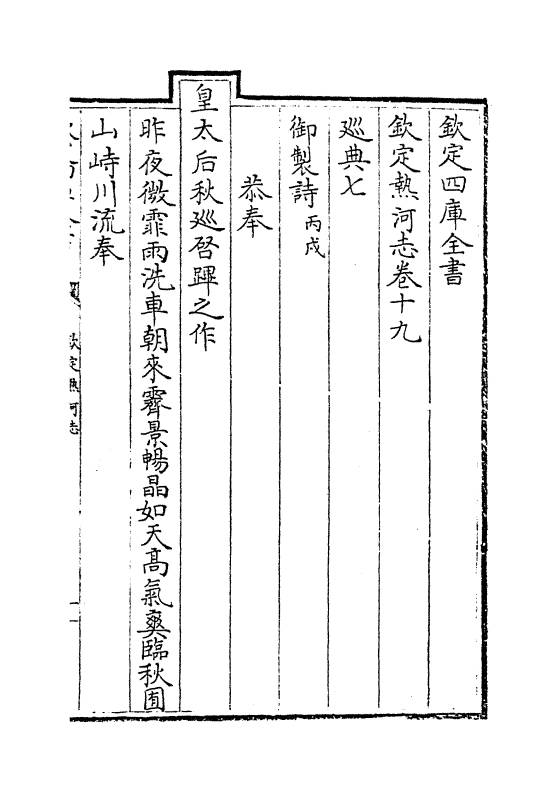 欽定四庫全書
欽定熱河志卷十九
廵典七
御製詩丙戌
恭奉
皇太后秋廵啓蹕之作
昨夜微霏雨洗車朝來霽景暢晶如天髙氣爽臨秋囿
山峙川流奉
欽定熱河志
一